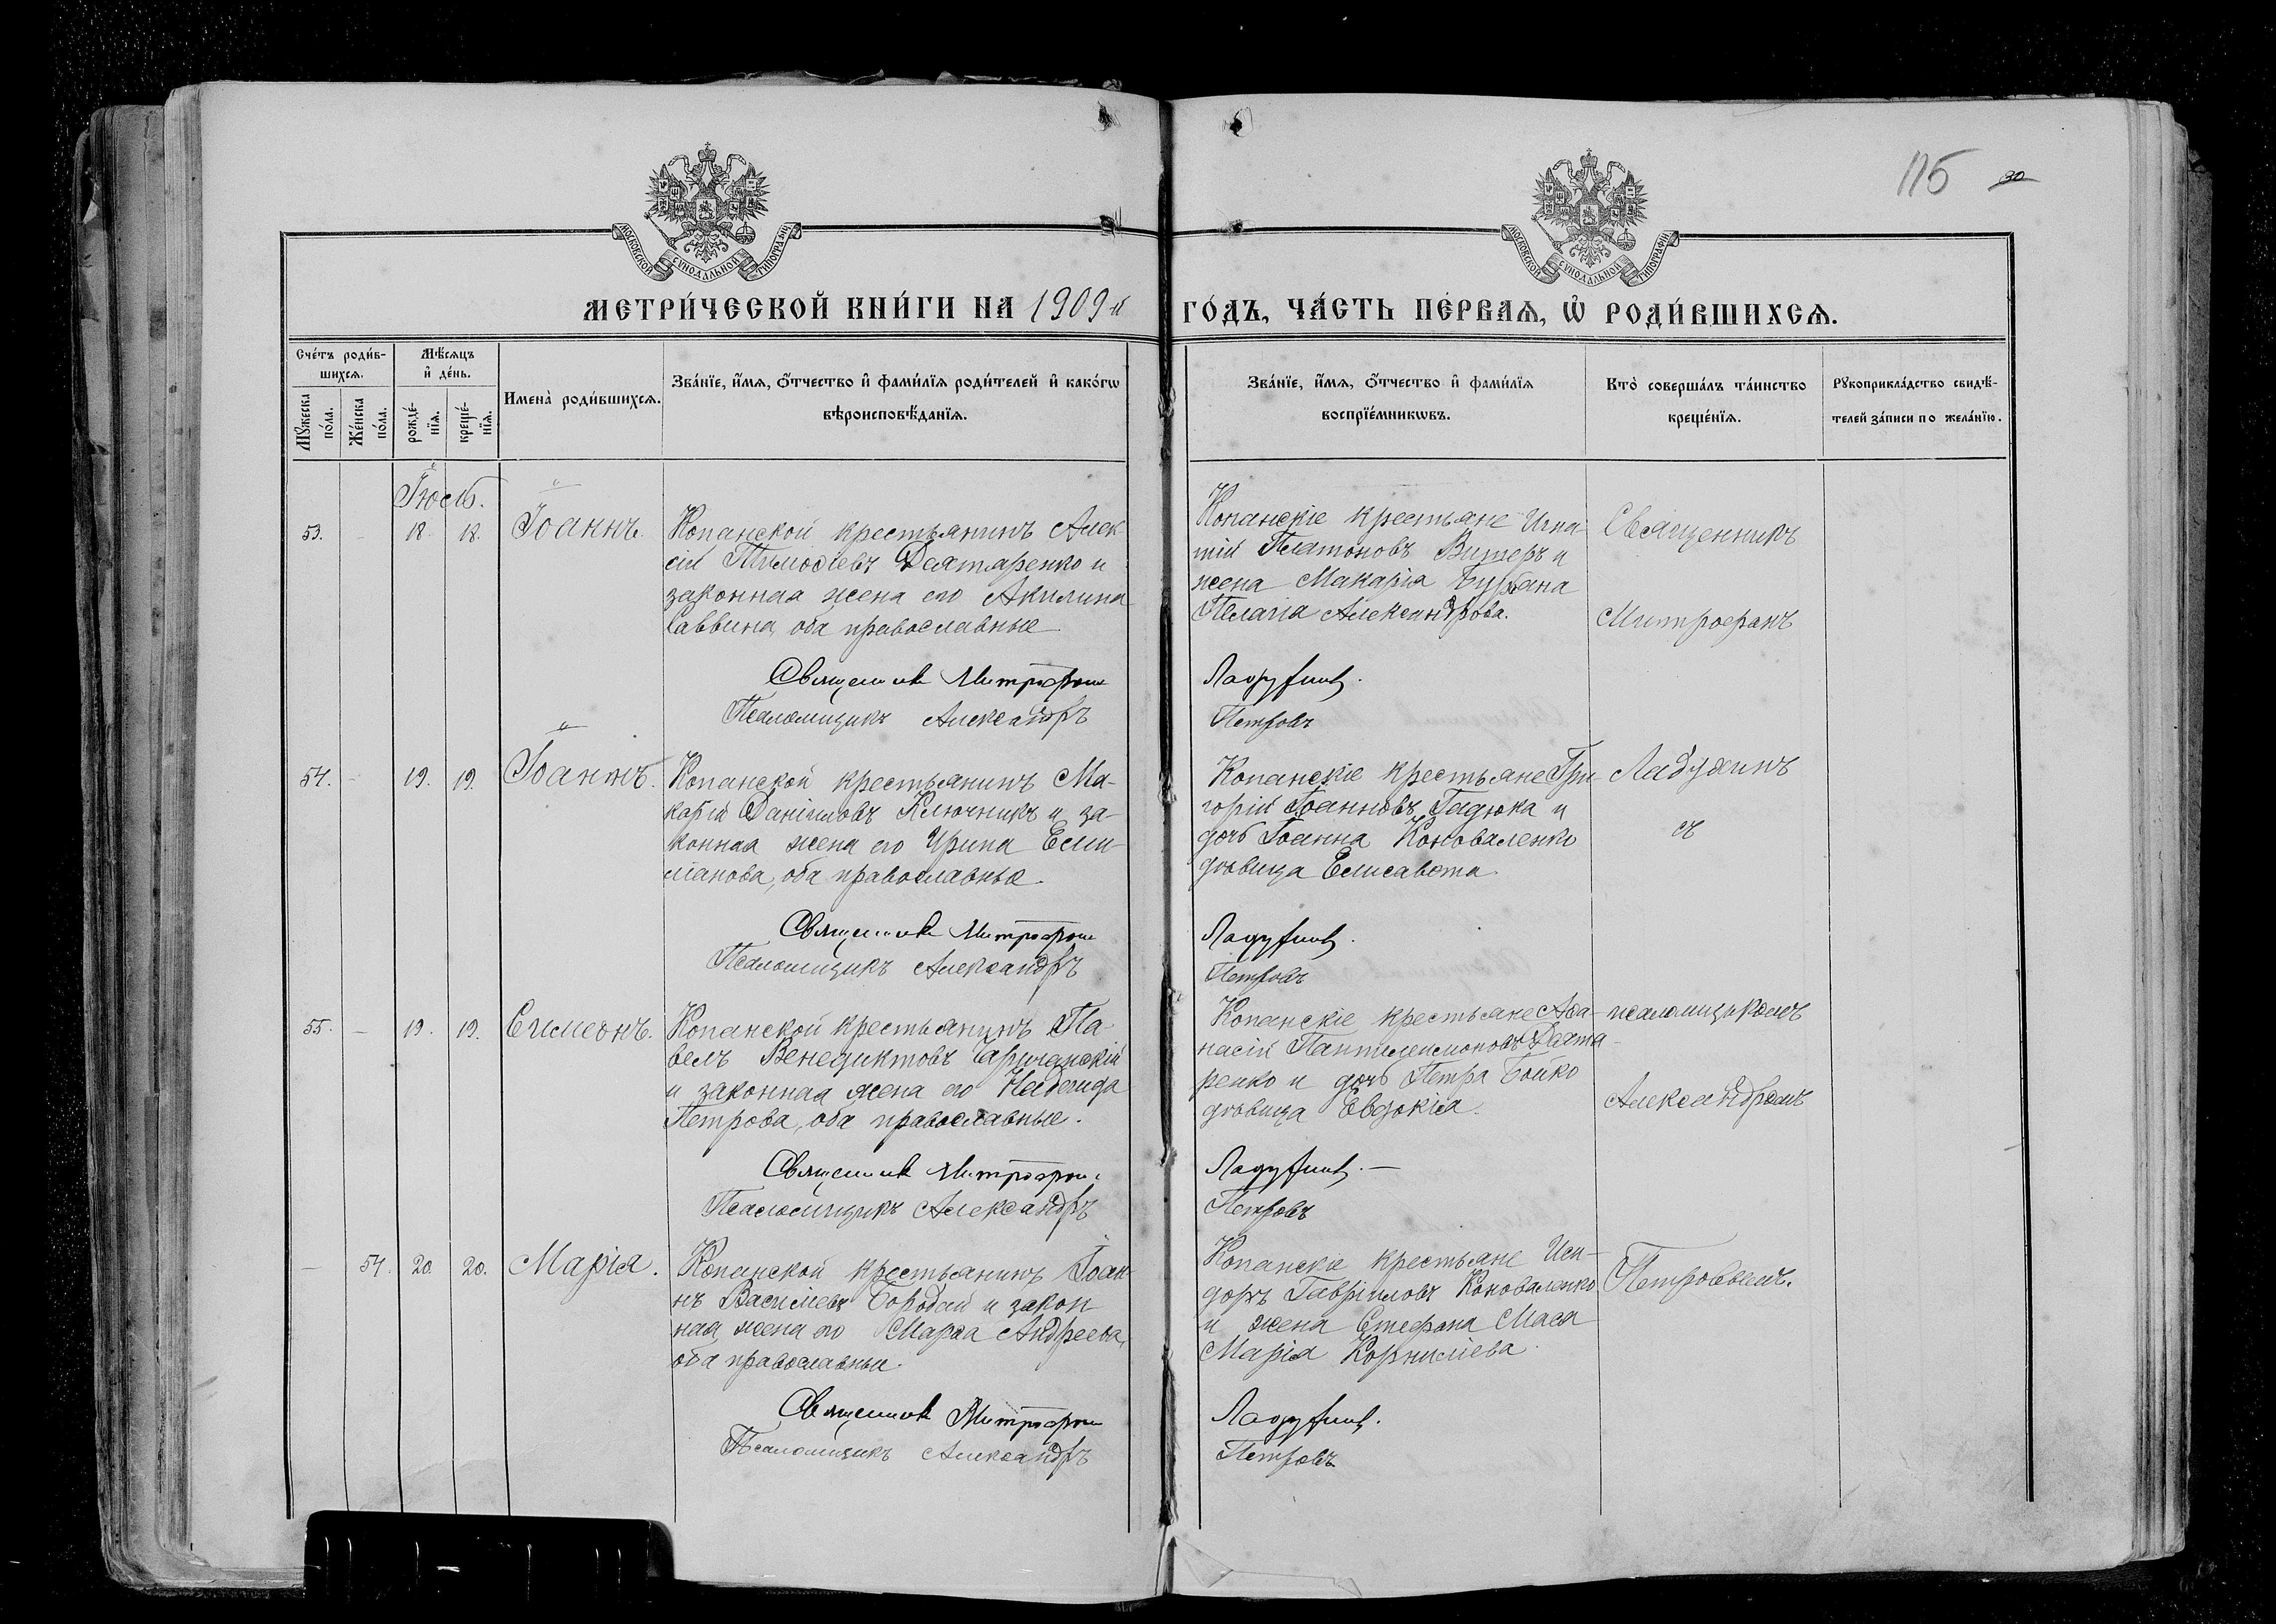 115 30
МОСКОВСКОЙ СѴНОДАЛЬНОЙ ТИПОГРАФІИ
МОСКОВСКОЙ СѴНОДАЛЬНОЙ ТИПОГРАФІИ
МЕТРИ́ЧЕСКОЙ КНИ́ГИ НА 1909й
ГО́ДЪ, ЧА́СТЬ ПЕ́РВАѦ, Ѽ РОДИ́ВШИХСѦ.
Сче́тъ роди́в-
шихсѧ.
Мꙋ́жеска по́ла.
Же́нска по́ла.
Мѣ́сѧцъ
и҆ де́нь.
рожде́-
нїѧ.
креще́-
нїѧ.
Имена̀ роди́вшихсѧ.
Зва́нїе, и҆́мѧ, ѻ҆́тчество и҆ фами́лїѧ роди́телей и҆ како́гѡ
вѣроисповѣ́данїѧ.
Зва́нїе, и҆́мѧ, ѻ҆́тчество и҆ фами́лїѧ
воспрїе́мникѡвъ.
Кто̀ соверша́лъ та́инство
креще́нїѧ.
Рꙋкоприкла́дство свидѣ́-
телей за́писи по жела́нїю.
Іюль.
53. - 18. 18. Іоаннъ.
Копанской крестьянинъ Алек-
сій Тимоѳіевъ Дехтяренко и
законная жена его Акилина
Саввина, оба православные
Священникъ Митрофанъ
Псаломщикъ Александръ
Копанскіе крестьяне Игна-
тій Платоновъ и
жена Макарія Бурбана
Пелагія Александрова.
Ладухинъ.
Петровъ
Священникъ
Митрофанъ
54. - 19. 19. Іоаннъ.
Копанской крестьянинъ Ма-
карій Даніиловъ Ключникъ и за-
конная жена его Ирина Емили-
іанова, оба православные.
Священникъ Митрофанъ
Псаломщикъ Александръ
Копанскіе крестьяне Гри-
горій Іоанновъ Гадюка и
дочь Іоанна Коноваленко
дѣвица Елисавета.
Ладухинъ.
Петровъ
Ладухинъ
съ
55. - 19. 19. Симеонъ.
Копанской крестьянинъ Па-
велъ Венедиктовъ
и законная жена его Надежда
Петрова, оба православные.
Священникъ Митрофанъ
Псаломщикъ Александръ
Копанскіе крестьяне Аѳа-
насій Пантелеимоновъ Дехтя-
ренко и дочь Петра Бойко
дѣвица Евдокія.
Ладухинъ. -
Петровъ
псаломщикомъ
Александромъ
- 54. 20. 20. Марія.
Копанской крестьянинъ Іоан-
нъ Василіевъ Бородай и закон-
ная жена его Марѳа Андреева,
оба православные.
Священникъ Митрофанъ
Псаломщикъ Александръ
Копанскіе крестьяне Иси-
доръ Гавріиловъ Коноваленко
и жена Стефана Маса
Марія Корниліева.
Ладухинъ.
Петровъ
Петровымъ.